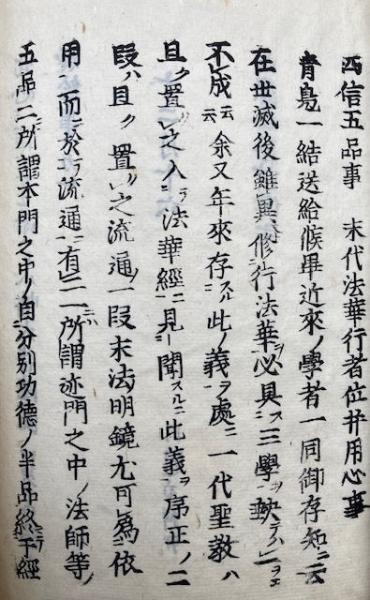 四信五品事　末代法華行者位并用心事
青鳧一結送給候畢近來ノ學者一同御存知ニ云
在世滅後雖異ト修ニ行法華ヲ必具ス三學ヲ缺テハ一ヲモ
不レ成云云余又年來存スル此ノ義ヲ處ニ一代聖教ハ
且ク置レ之入テ法華經ニ見聞スルニ此義ヲ序正ノ二
段ハ且ク置レ之流通ノ一段末法明鏡尤可為依
用而於テ流通ニ有二一所謂迹門之中ノ法師等ノ
五品二ニハ所謂本門之中ノ自分別功德ノ半品終マテ于經